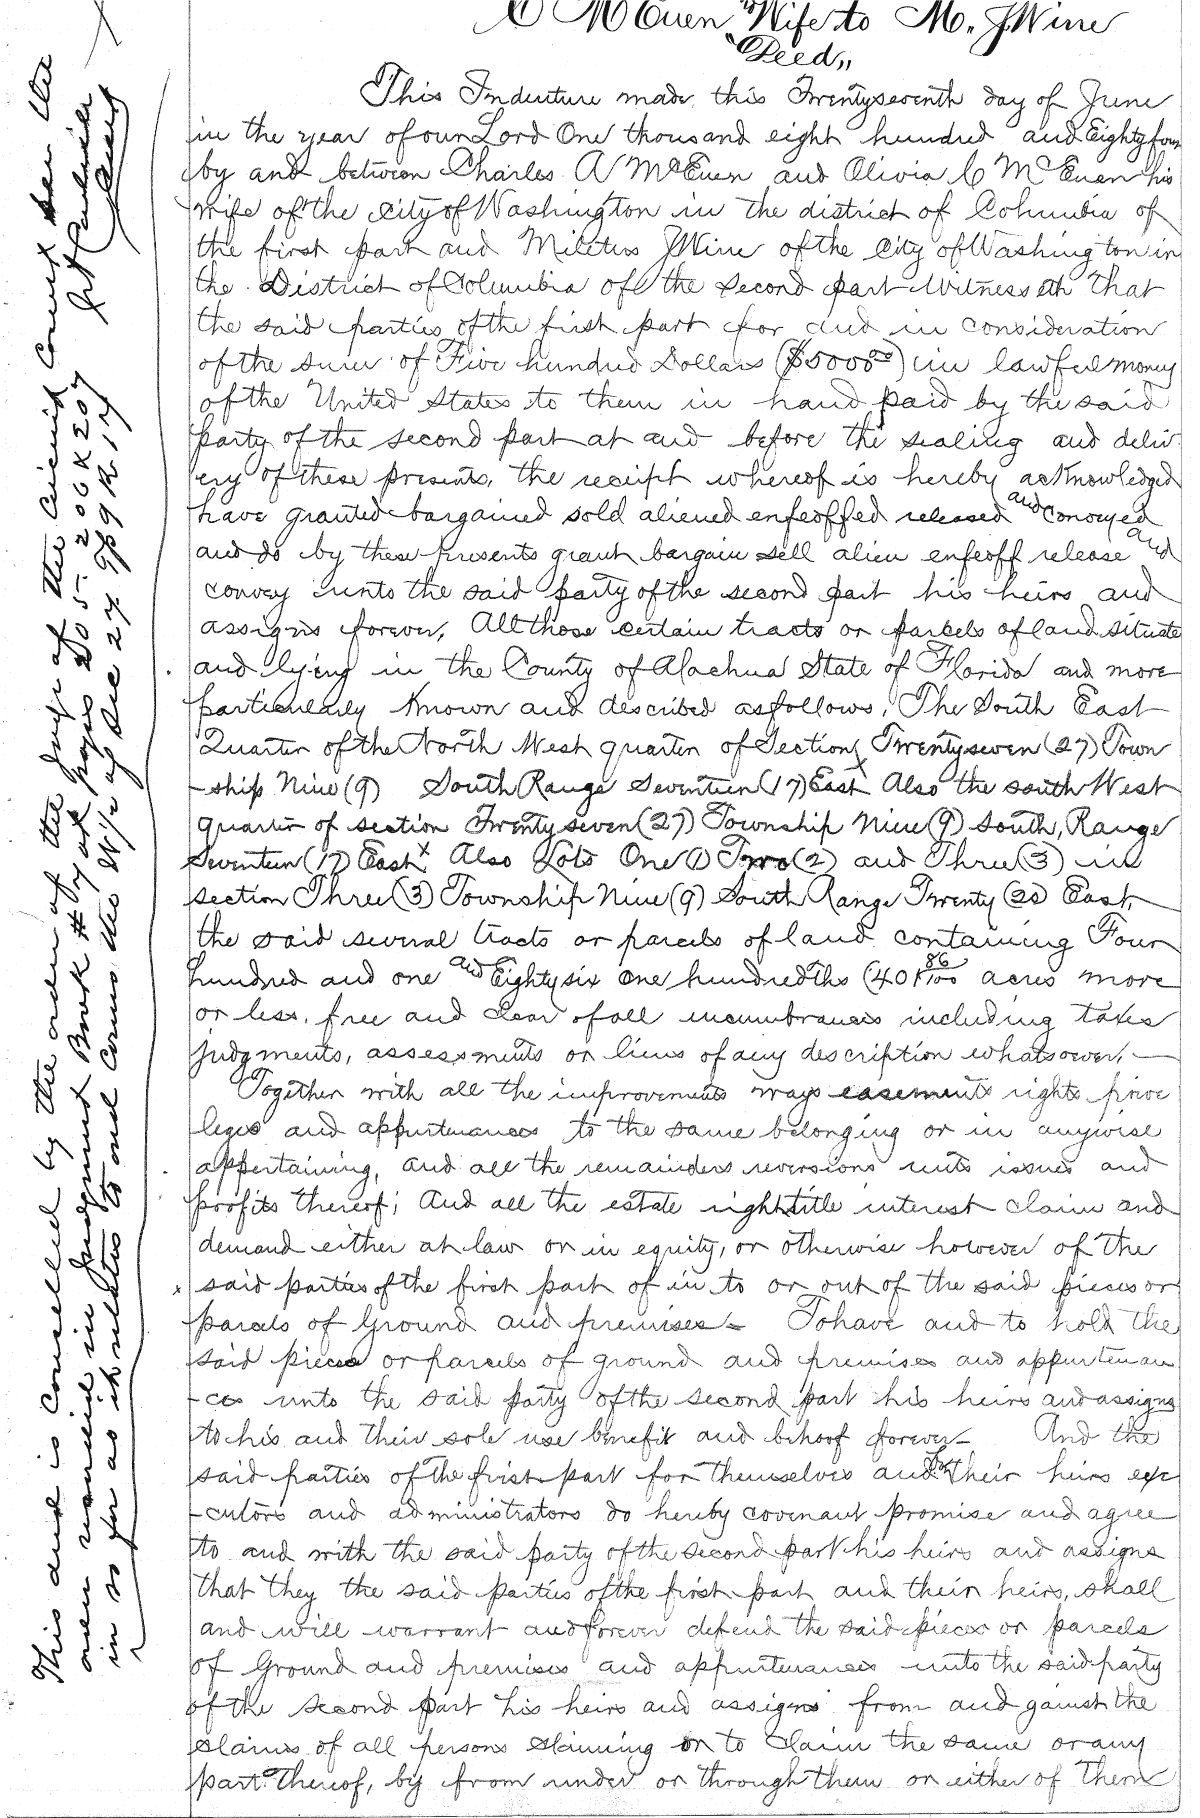 C A McEuen & Wife to M. J Wine
"Deed"
This Indenture made this Twentyseventh day of June
in the year of our Lord One thousand eight hundred and Eightyfour
by and between Charles A McEuen and Olivia C McEuen his
wife of the city of Washington in the district of Columbia of
the first part and Miletus J Wine of the City of Washington in
the District of Columbia of the second part Witnesseth That
the said parties of the first part for and in consideration
of the sum of Five hundred Dollars ($5000.00) in lawful money
of the United States to them in hand paid by the said
party of the second part at and before the sealing and deliv
ery of these presents, the receipt whereof is hereby acknowledged
have granted bargained sold aliened enfeoffed released and conveyed
and do by these presents grant bargain sell alien enfeoff release and
convey unto the said party of the second part his heirs and
assigns forever, All those certain tracts or parcels of land situate
and lying in the County of Alachua State of Florida and more
particularly known and described as follows, The South East
Quarter of the North West quarter of Section Twentyseven (27) Town
-ship Nine (9) South Range Seventeen (17) East Also the south West
quarter of section Twenty seven (27) Township Nine (9) South, Range
Seventeen (17) East x Also Lots One (1) Two (2) and Three (3) in
section Three (3) Township Nine (9) South Range Twenty (20) East,
the said several tracts or parcels of land containing Four
hundred and one and Eighty six one hundredths (401 86/100 acres more
or less, free and clear of all incumbrances including taxes
judgments, assessments or liens of any description whatsoever,
Together with all the improvements ways easements rights prive
leges and appurtenances to the same belonging or in anywise
appertaining, and all the remainders reversions rents issues and
profits thereof; And all the estate right title interest claim and
demand either at law or in equity, or otherwise however of the
said parties of the first part of in to or out of the said pieces or
parcels of Ground and premises - To have and to hold the
said pieces or parcels of ground and premises and appurtenan
-ces unto the said party of the second part his heirs and assigns
to his and their sole use benefit and behoof forever - And the
said parties of the first part for themselves and for their heirs exe
-cutors and administrators do hereby covenant promise and agree
to and with the said party of the second part his heirs and assigns
that they the said parties of the first part and their heirs, shall
and will warrant and forever defend the said pieces or parcels
of Ground and premises and appurtenances unto the said party
of the second part his heirs and assigns from and gainst the
claims of all persons claiming or to claim the same or any
part thereof, by from under or through them or either of them
This deed is cancelled by the order of the Judge of the Circuit Court see the
order recorded in Judgment Book # 7 at pages 205-206 & 207
in so far as it relates to and covers the N½ of Sec 27 Tp 9 R 17